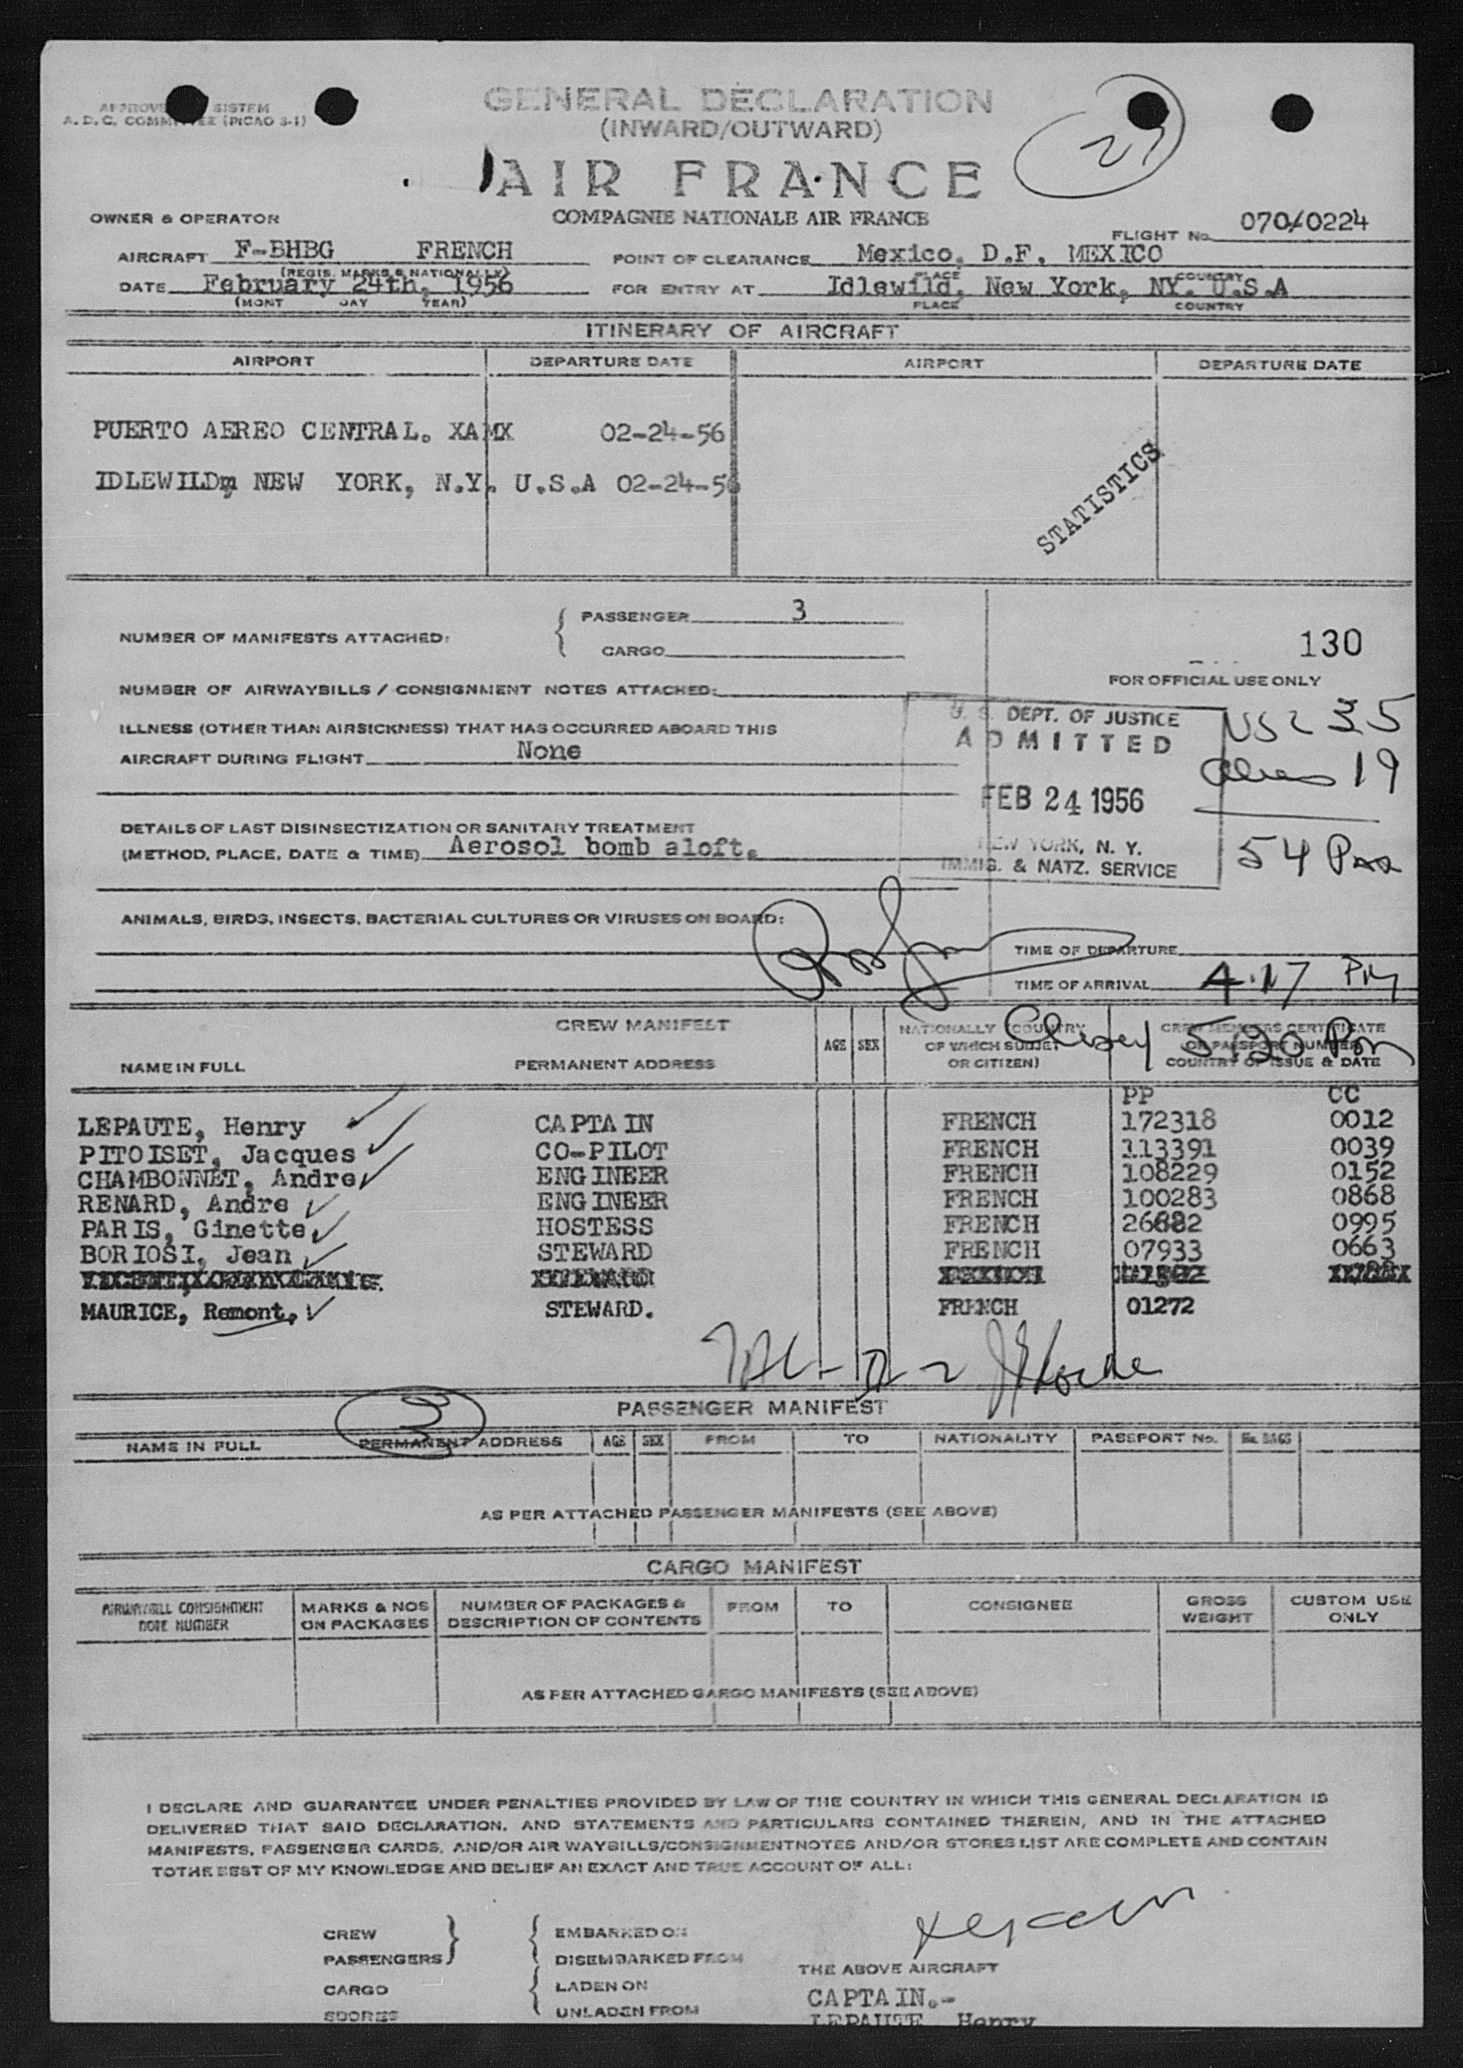 GENERAL DECLARATION
(INWARD/OUTWARD)
A. D. C. COMMITTEE (PICAO 3-1)
21
AIR FRANCE
COMPAGNIE NATIONALE AIR FRANCE
OWNER & OPERATOR
FLIGHT No. 070/0224
AIRCRAFT F-BHBG FRENCH
(REGIS. MARKS & NATIONALLY)
POINT OF CLEARANCE Mexico, D.F. MEXICO
PLACE COUNTRY
DATE February 24th, 1956
(MONT DAY YEAR)
FOR ENTRY AT Idlewild, New York, NY. U.S.A
PLACE COUNTRY
ITINERARY OF AIRCRAFT
AIRPORT DEPARTURE DATE AIRPORT DEPARTURE DATE
PUERTO AEREO CENTRAL. XAMX 02-24-56
IDLEWILDm, NEW YORK, N.Y. U.S.A 02-24-56
STATISTICS
NUMBER OF MANIFESTS ATTACHED:
PASSENGER 3
CARGO
130
FOR OFFICIAL USE ONLY
NUMBER OF AIRWAYBILLS / CONSIGNMENT NOTES ATTACHED:
ILLNESS (OTHER THAN AIRSICKNESS) THAT HAS OCCURRED ABOARD THIS
AIRCRAFT DURING FLIGHT None
U. S. DEPT. OF JUSTICE
ADMITTED
FEB 24 1956
NEW YORK, N. Y.
IMMIG. & NATZ. SERVICE
USC 35
aliens 19
54 Pax
DETAILS OF LAST DISINSECTIZATION OR SANITARY TREATMENT
(METHOD, PLACE, DATE & TIME) Aerosol bomb aloft.
ANIMALS, BIRDS, INSECTS, BACTERIAL CULTURES OR VIRUSES ON BOARD:
TIME OF DEPARTURE
TIME OF ARRIVAL 4.17 PM
5:20 Pm
CREW MANIFEST
NAME IN FULL PERMANENT ADDRESS AGE SEX
NATIONALLY (COUNTRY
OF WHICH SUBJET
OR CITIZEN)
CREW MEMBERS CERTIFICATE
OR PASSPORT NUMBER
COUNTRY OF ISSUE & DATE
PP CC
LEPAUTE, Henry CAPTAIN FRENCH 172318 0012
PITOISET, Jacques CO-PILOT FRENCH 113391 0039
CHAMBONNET, Andre ENGINEER FRENCH 108229 0152
RENARD, Andre ENGINEER FRENCH 100283 0868
PARIS, Ginette HOSTESS FRENCH 26882 0995
BORIOSI, Jean STEWARD FRENCH 07933 0663
MAURICE, Remont, STEWARD. FRENCH 01272
PASSENGER MANIFEST
3
NAME IN FULL PERMANENT ADDRESS AGE SEX FROM TO NATIONALITY PASSPORT No. No. BAGS
AS PER ATTACHED PASSENGER MANIFESTS (SEE ABOVE)
CARGO MANIFEST
AIRWAYBILL CONSIGNMENT
NOTE NUMBER
MARKS & NOS
ON PACKAGES
NUMBER OF PACKAGES &
DESCRIPTION OF CONTENTS
FROM TO CONSIGNEE
GROSS
WEIGHT
CUSTOM USE
ONLY
AS PER ATTACHED CARGO MANIFESTS (SEE ABOVE)
I DECLARE AND GUARANTEE UNDER PENALTIES PROVIDED BY LAW OF THE COUNTRY IN WHICH THIS GENERAL DECLARATION IS
DELIVERED THAT SAID DECLARATION, AND STATEMENTS AND PARTICULARS CONTAINED THEREIN, AND IN THE ATTACHED
MANIFESTS, PASSENGER CARDS, AND/OR AIR WAYBILLS/CONSIGNMENTNOTES AND/OR STORES LIST ARE COMPLETE AND CONTAIN
TOTHE BEST OF MY KNOWLEDGE AND BELIEF AN EXACT AND TRUE ACCOUNT OF ALL:
CREW EMBARKED ON
PASSENGERS DISEMBARKED FROM
THE ABOVE AIRCRAFT
CARGO LADEN ON
CAPTAIN.-
UNLADEN FROM
LEPAUTE Henry